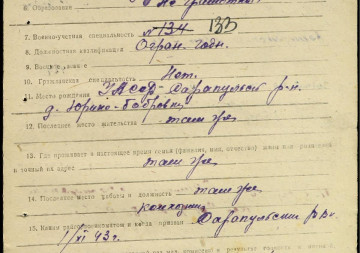 6. Образование
7. Военноучетная специальность № 134 133
8. Должностная квалификация Огран. годн.
9.
10. Гражданская специальность Нет.
11. Место рождения УАССР Сарапульский р-н.
д. Юрино-Бобровка
12. Последнее место жительства там же
13. Где проживает в настоящее время семья (фамилия, имя, отчество) жены или родителей
и точный их адрес там же
14. Последнее место работы и должность там же
колхозник
15. Каким райгорвоенкоматом и когда призван Сарапульским РВК
1/VI 43 г.